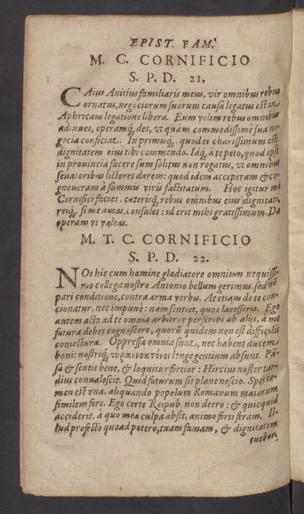 EPIST. FAM.
M. C. CORNIFICIO
S. P. D. 21.
CAius Anitius familiaris meus, vir omnibus rebus
ornatus, negociorum suorum causa legatus est in
Aphricam legatione libera. Eum velim rebus omnibus
adiuues, operamq́; des, vt quàm commodissimè sua ne-
gocia conficiat. In primisq́; quod ei charissimum est
dignitatem eius tibi commendo. Idq́; à te peto, quod ipse
in prouincia facere sum solitus non rogatus, vt omnibus
senatoribus lictores darem: quod idem acceperam & co-
gnoueram à summis viris factitatum. Hoc igitur mi
Cornifici facies: caterisq́; rebus omnibus eius dignitati,
reiq́; si me amas, consules: id erit mihi gratissimum. Da
operam vt valeas.
M. T. C. CORNIFICIO
S. P. D. 22.
NOs hic cum homine gladiatore omnium nequissi-
mo collega nostro Antonio bellum gerimus. sed nō
pari conditione, contra arma verbis. At etiam de te con-
cionatur. nec impunè: nam sentiet, quos lacesserit. Ego
antem acta ad te omnia arbitror perscribi ab aliis, à me
futura debes cognoscere, quorū quidem non est difficilis
coniectura. Oppressa omnia sunt, nec habent ducem
boni: nostriq́; τυραννοκτόνοι longe gentium absunt. Pā-
sa & sentit bene, & loquitur fortior: Hircius noster tar-
dius conualescit. Quid futurum sit planè nescio. Spes ta-
men est vna, aliquando populum Romanum maiorum
similem fore. Ego certè Reipub. non deero: & quicquid
acciderit, à quo mea culpa absit, animo forti feram. Il-
lud profectò quoad potero, tuam famam, & dignitatem
tuebor.